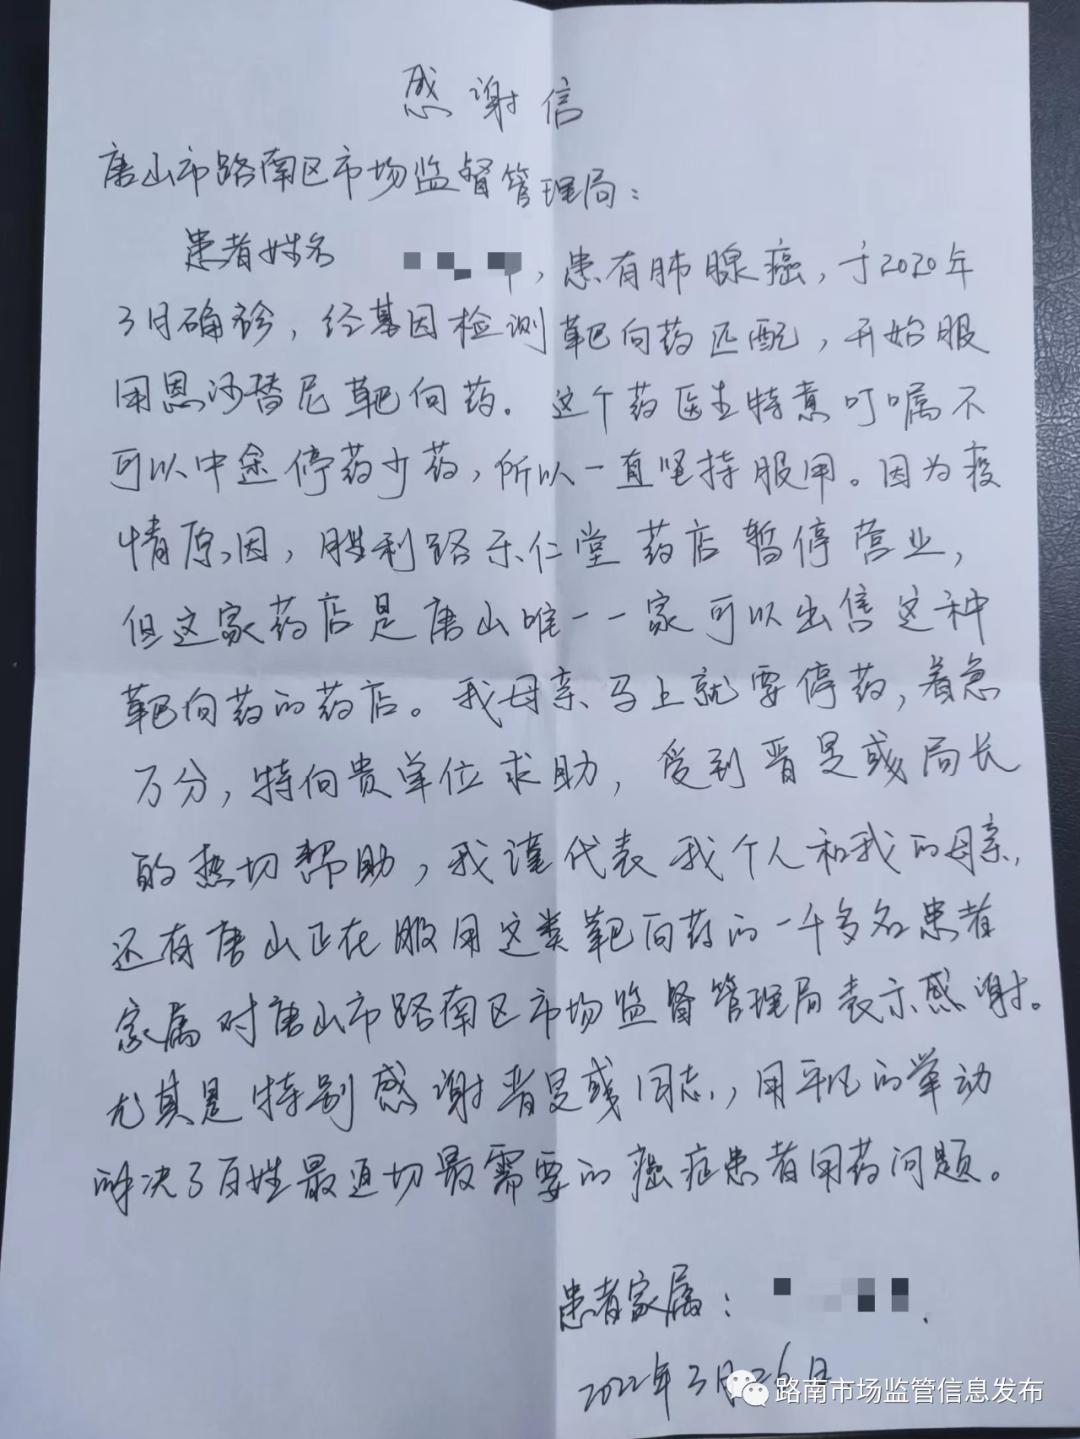 感谢信
唐山市路南区市场监督管理局：
患者姓名 ，患有肺腺癌，于2020年
3月确诊，经基因检测靶向药匹配，开始服
用恩沙替尼靶向药。这个药医生特意叮嘱不
可以中途停药少药，所以一直坚持服用。因为疫
情原因，胜利路乐仁堂药店暂停营业，
但这家药店是唐山唯一一家可以出售这种
靶向药的药店。我母亲马上就要停药，着急
万分，特向贵单位求助，受到晋昱彧局长
的热切帮助，我谨代表我个人和我的母亲，
还有唐山正在服用这类靶向药的一千多名患者
家属对唐山市路南区市场监督管理局表示感谢。
尤其是特别感谢晋昱彧同志，用平凡的举动
解决了百姓最迫切最需要的癌症患者用药问题。
患者家属：
2022年3月26日
路南市场监管信息发布